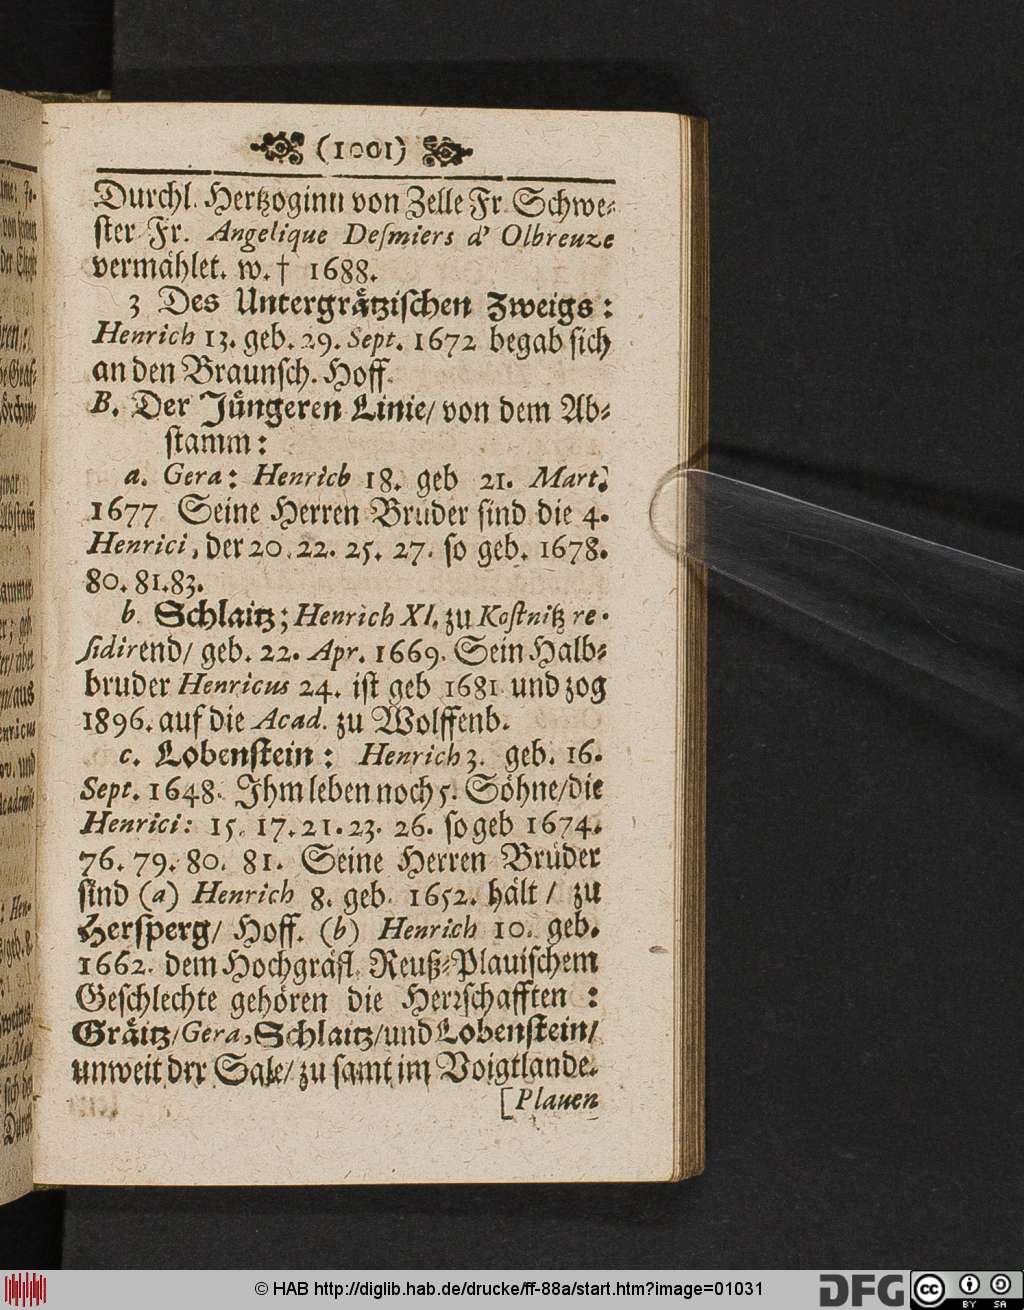 (1001)
Durchl. Hertzoginn von Zelle Fr. Schwe-
ster Fr. Angelique Deſmiers d' Olbreuze
vermåhlet. w. † 1688.
3 Des Untergråtziſchen Zweigs:
Henrich 13. geb. 29. Sept. 1672 begab ſich
an den Braunſch. Hoff.
B. Der Jůngeren Linie/ von dem Ab-
ſtamm:
a. Gera: Henrich 18. geb 21. Mart.
1677 Seine Herren Bruder ſind die 4.
Henrici, der 20. 22. 25. 27. ſo geb. 1678.
80. 81. 83.
b. Schlaitz; Henrich XI. zu Koſtnitz re-
ſidirend/ geb. 22. Apr. 1669. Sein Halb-
bruder Henricus 24. iſt geb 1681 und zog
1896. auf die Acad. zu Wolffenb.
c. Lobenſtein: Henrich 3. geb. 16.
Sept. 1648. Ihm leben noch 5. Söhne/die
Henrici: 15. 17. 21. 23. 26. ſo geb 1674.
76. 79. 80. 81. Seine Herren Brüder
ſind (a) Henrich 8. geb. 1652. hålt / zu
Herſperg/ Hoff. (b) Henrich 10. geb.
1662. dem Hochgråfl. Reuß-Plauiſchem
Geſchlechte gehören die Herrſchafften:
Gråitz/Gera, Schlaitz/und Lobenſtein/
unweit drr Sale/ zu ſamt im Voigtlande.
[Plauen
© HAB http://diglib.hab.de/drucke/ff-88a/start.htm?image=01031
DFG
CC BY SA